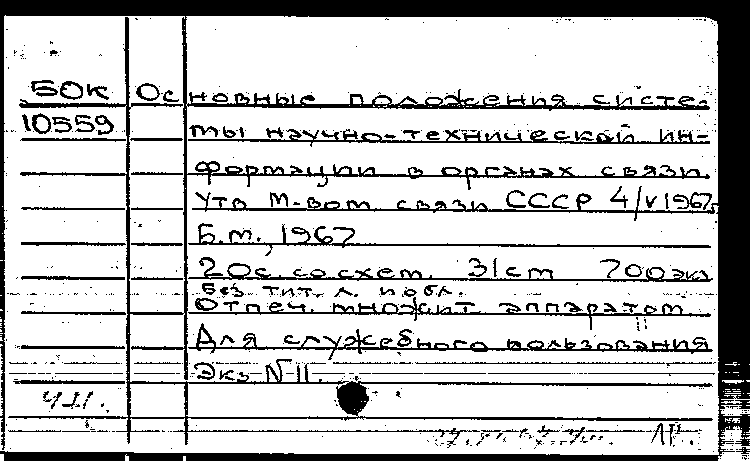 БОК Основные положения систе-
10559 мы научно-технической ин-
формации в органах связи.
Утв М-вом связи СССР 4/V 1967г.
Б.м., 1967
20с. со схем. 31см 700экз
Без тит. л. и обл.
Отпеч. множит. аппаратом
Для служебного пользования
Экз N 11.